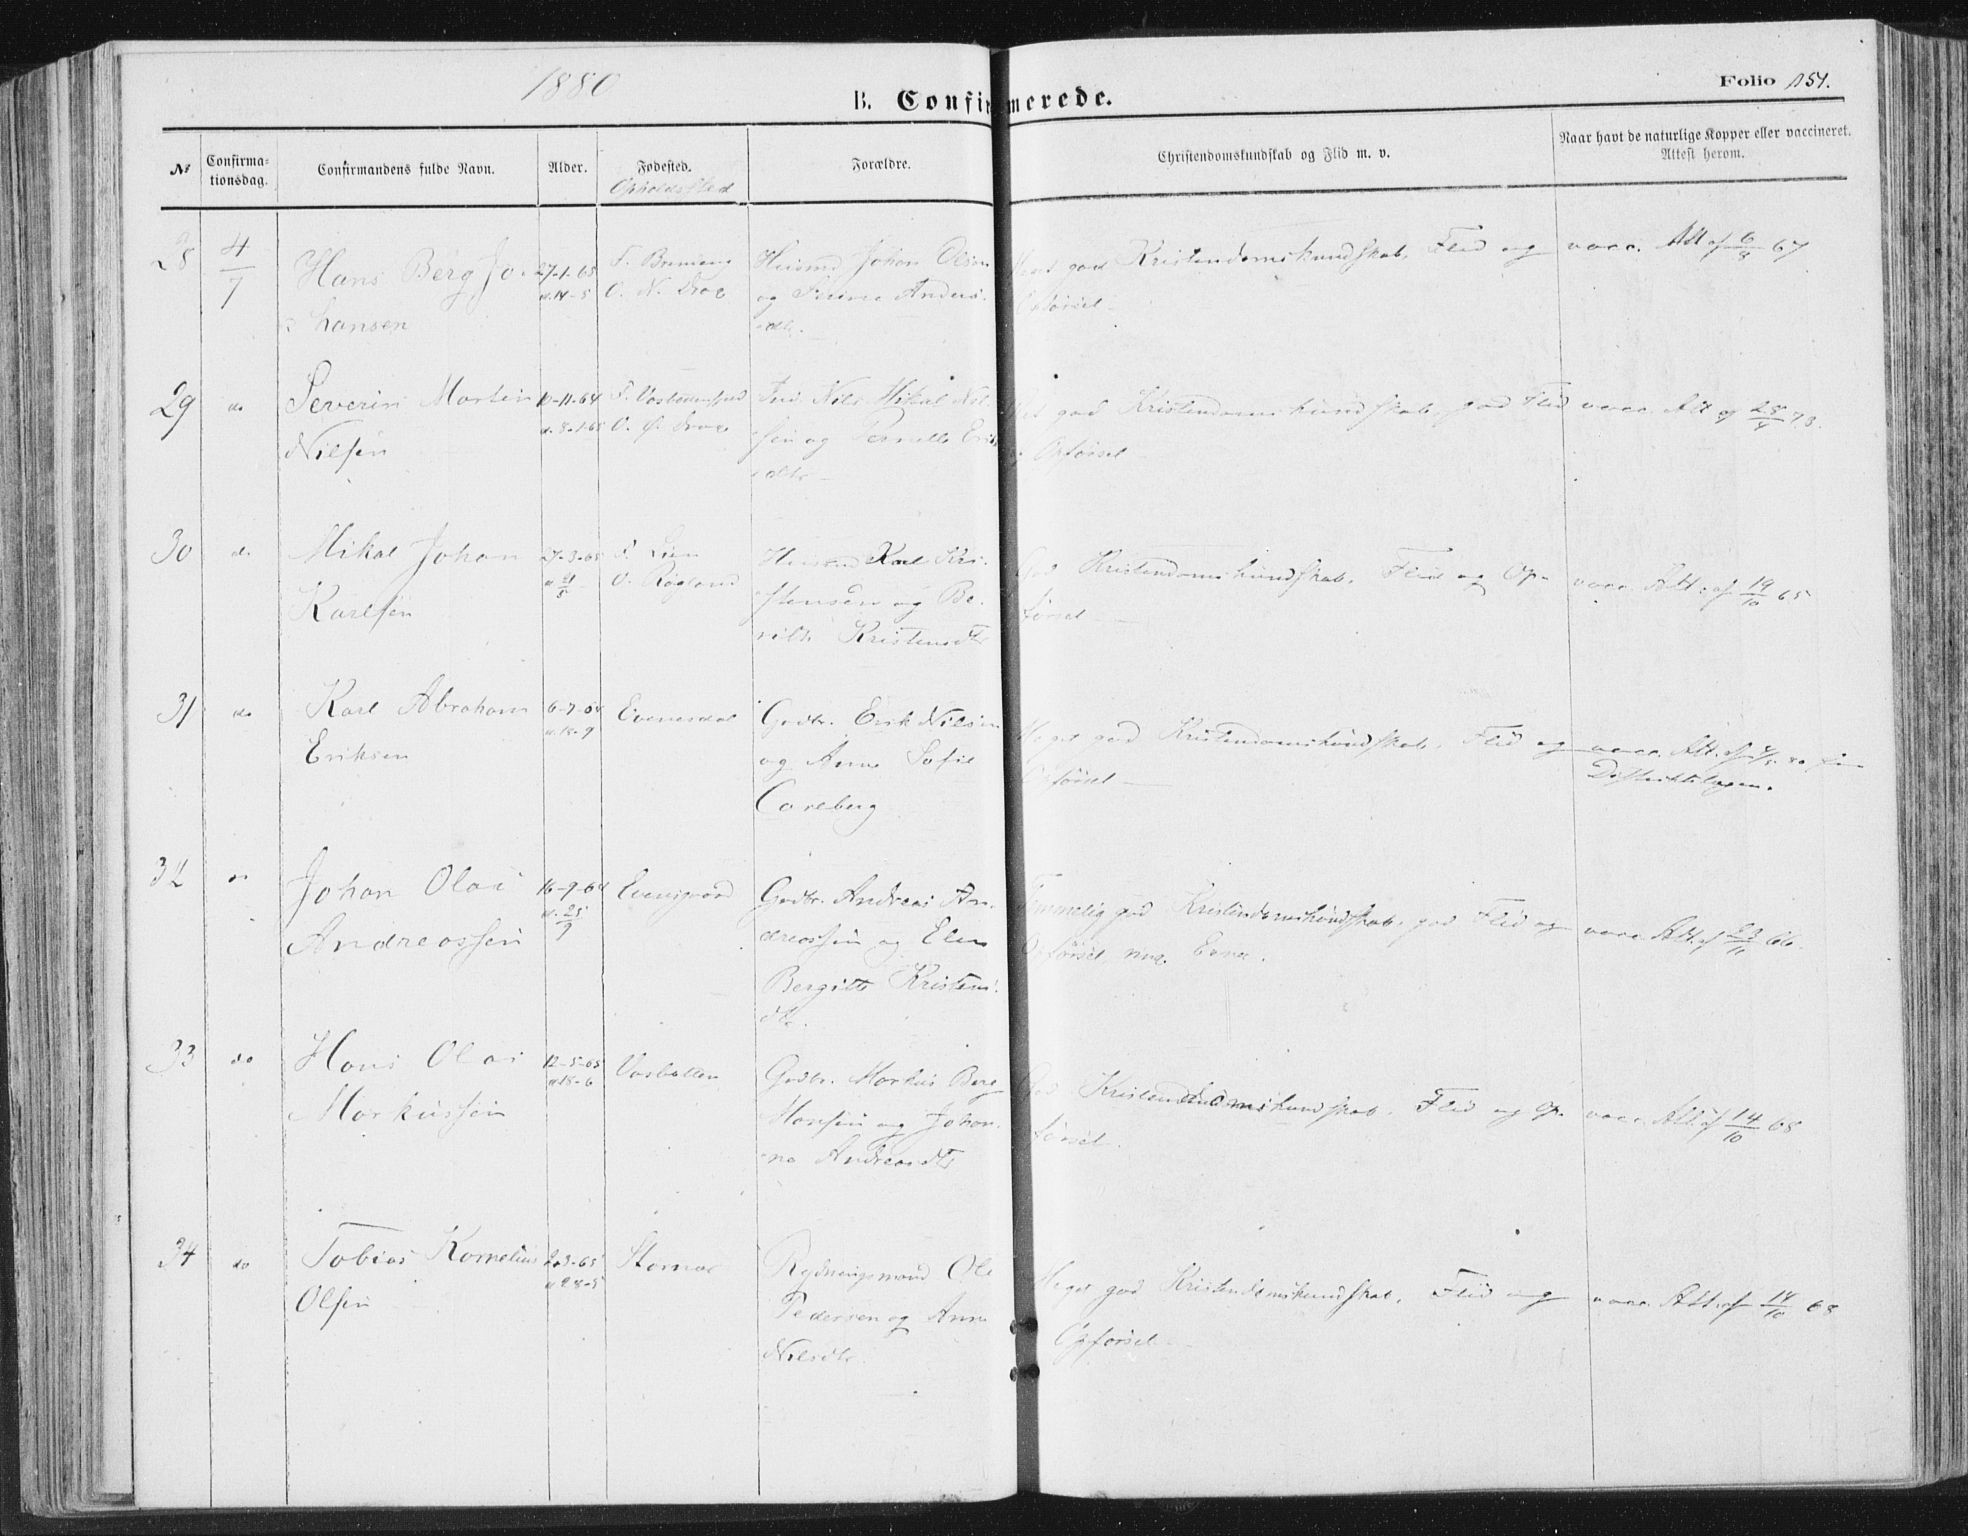 1880
B. Confirmerede.
Folio 151.
№
Confirma-
tionsdag.
Confirmandens fulde Navn.
Alder.
Fødested.
Opholdssted
Forældre.
Christendomskundskab og Flid m. v.
Naar havt de naturlige Kopper eller vaccineret.
Attest herom.
28 4/7 Hans Berg Jo- 27-1-65 F. O. N. Johan Olsen god Kristendomskundskab, Flid og vacc. Att af 6/8 67
hansen d. 14-5 og Anders- Opførsel
dtr.
29 do Severin Martin 10-11-64 F. Nils Mikal Nil- god Kristendomskundskab, god Flid vacc. Att af 28/4 73.
Nilsen d. 8-1-65 O. Ø. sen og Pernille Eriks Opførsel
dtr
30 do Mikal Johan 27-3-65 F. Lien Karl Kri- God Kristendomskundskab, Flid og Op- vacc. Att. af 19/10 65
Karlsen O. stensen og Be- førsel
rith Kristensdtr
31 do Karl Abraham 6-7-64 Evenesdal Gadbr. Erik Nilsen Meget god Kristendomskundskab, Flid og vacc. Att. af 80 fra
Eriksen d. 18-9 og Anna Sofie Opførsel Distriktslægen.
Careberg
32 do Johan Olai 16-9-64 Evensgaard Gadbr. Andreas An- Temmelig god Kristendomskundskab, god Flid og vacc. Att. af 23/10 66.
Andreassen d. 25/9 dreassen og Elen Opførsel, Evner.
Bergitte Kristens-
dtr.
33 do Hans Olai 12-5-65 Vasbotten Gadbr. Markus Berg God Kristendomskundskab, Flid og Op- vacc. Att. af 14/10 68
Markussen d. 18-6 Monsen og Johan- førsel.
na Andreasdtr
34 do Tobias Kornelius 2-3-65 Stornæs Rydningsmand Ole Meget god Kristendomskundskab, Flid og vacc. Att. af 14/10 68
Olsen d. 28-5 Pedersen og Anne Opførsel
Nilsdtr.